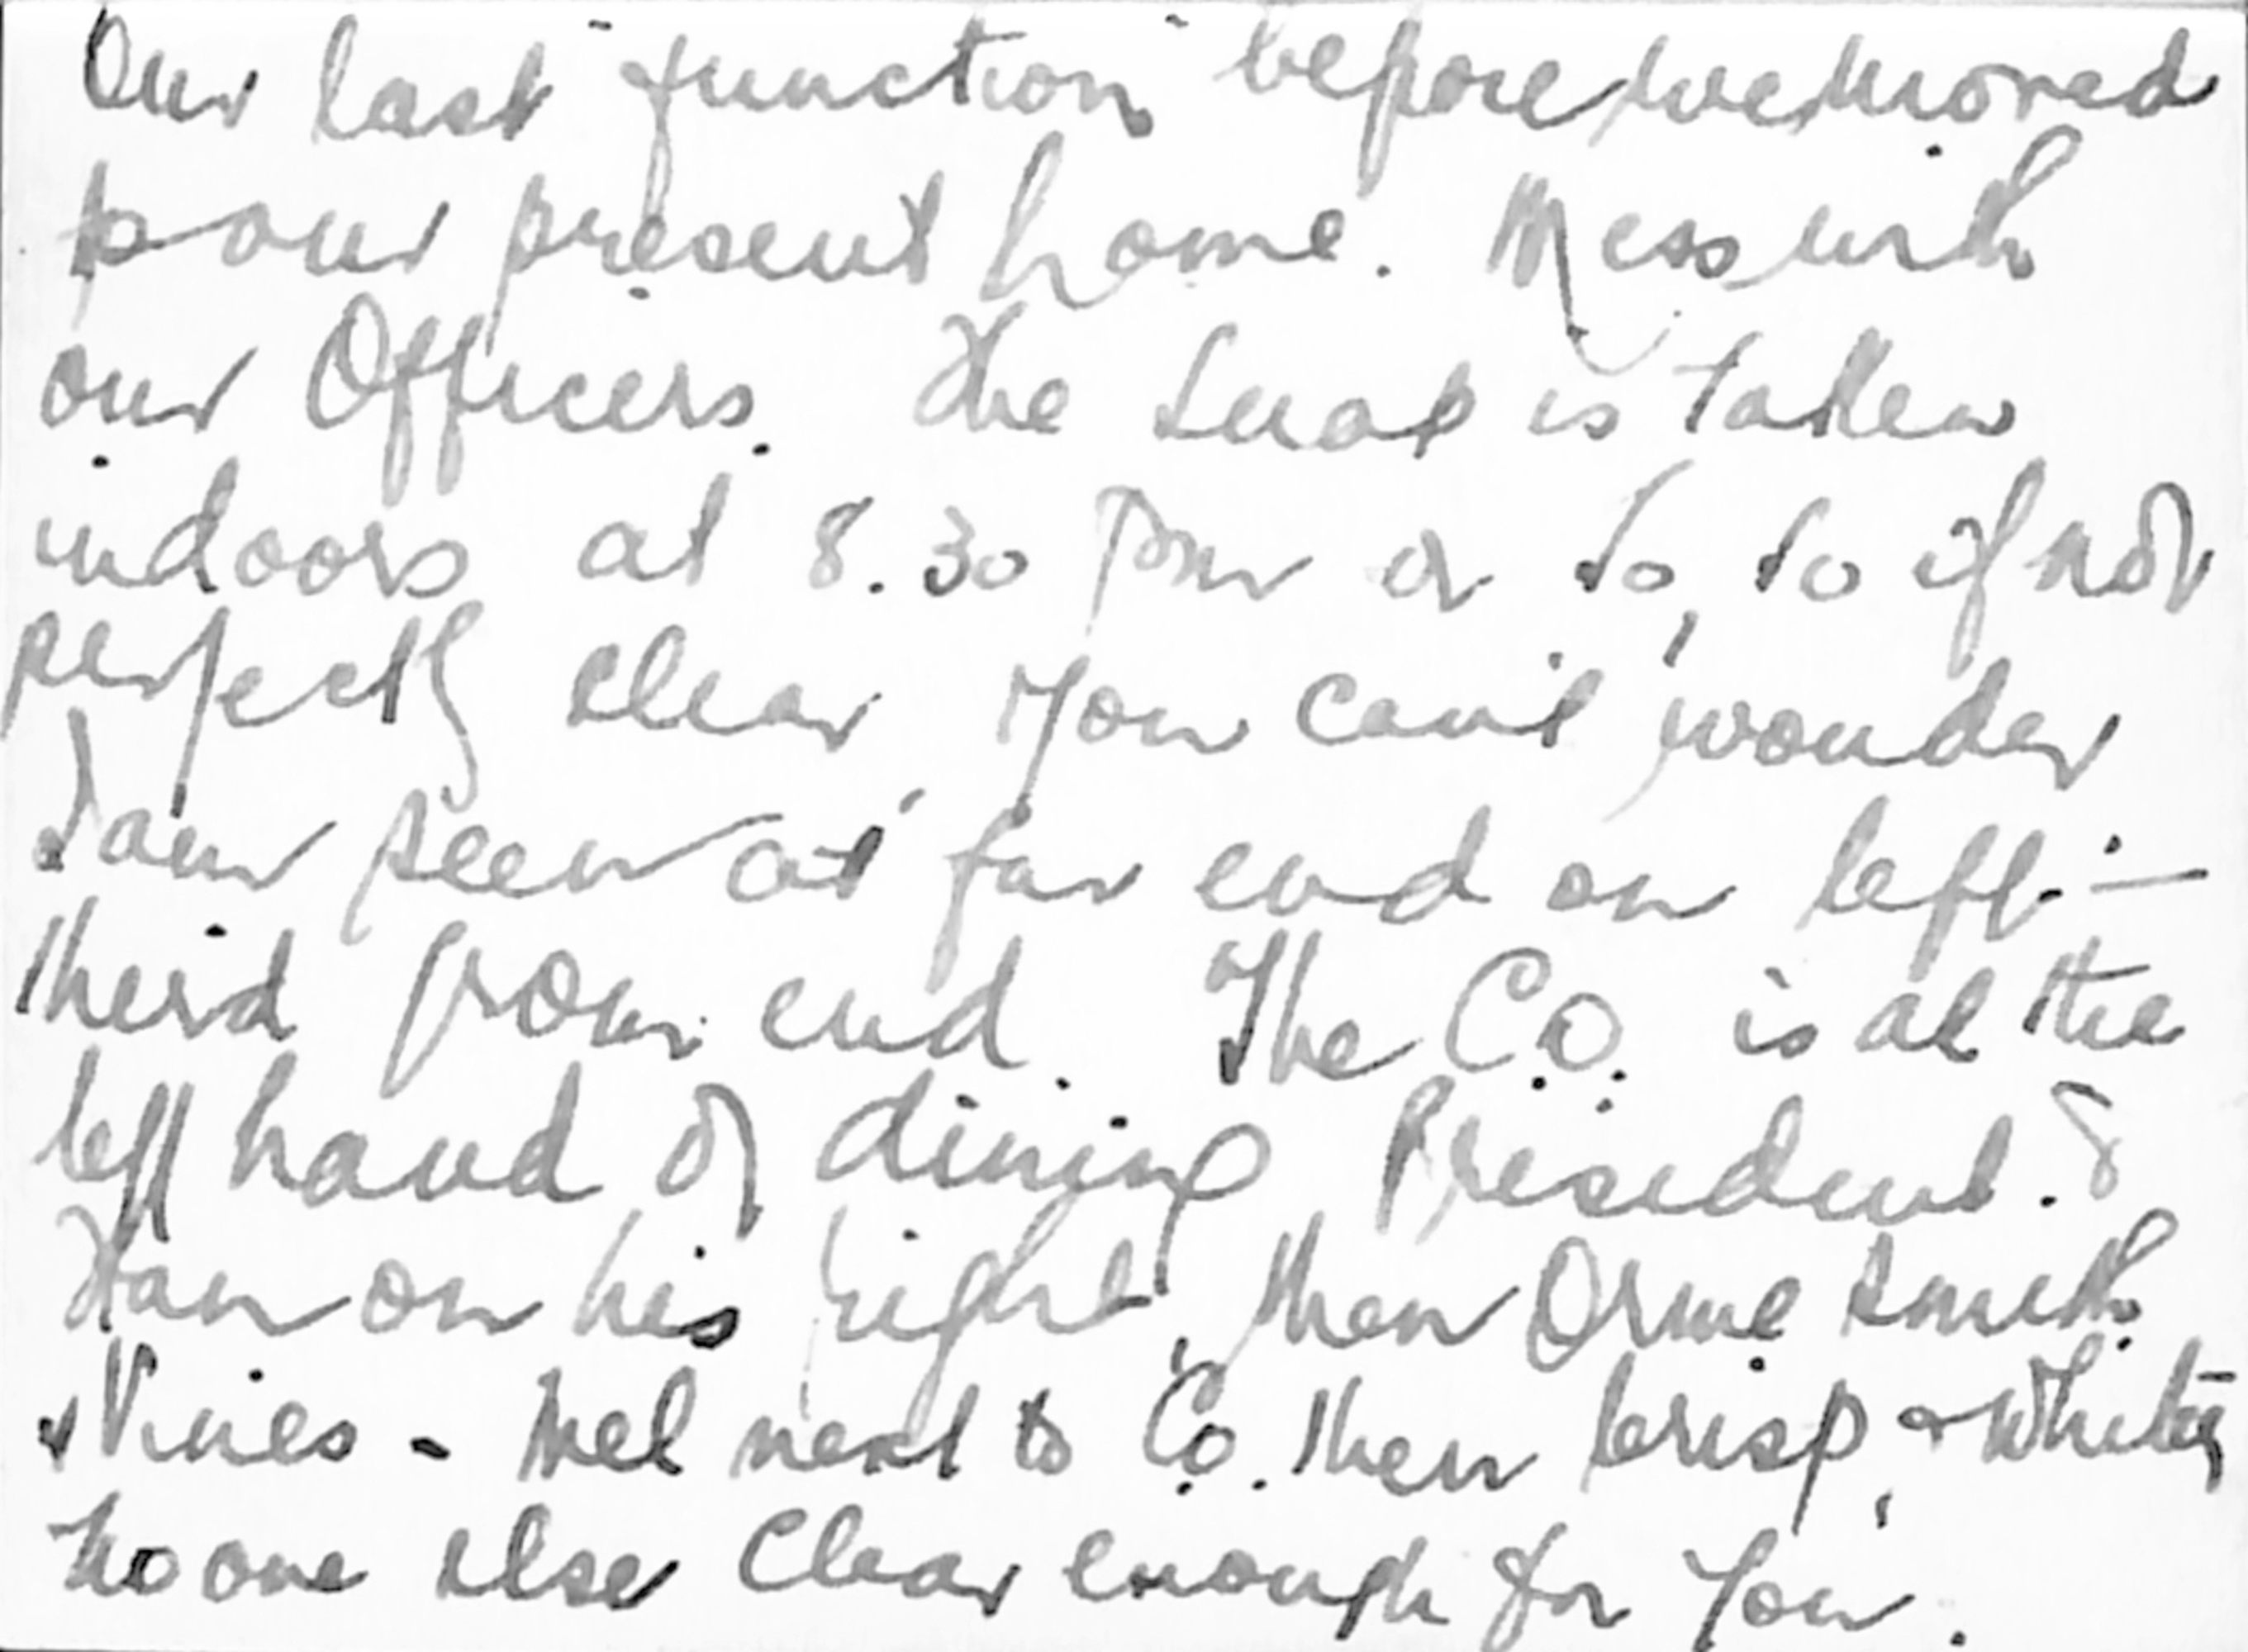 Our last "function" before we moved
to our present home. Mess with
our Officers. The snap is taken
indoors at 8.30 pm or so, so if not
perfectly clear you can't wonder
I am seen at far end on left. —
Third from end. The C.O. is at the
left hand of dining President. &
Han on his right, then Orme Smith
& Vines - Mel next to C.O. then Crisp, & Whitey
no one else clear enough for you.